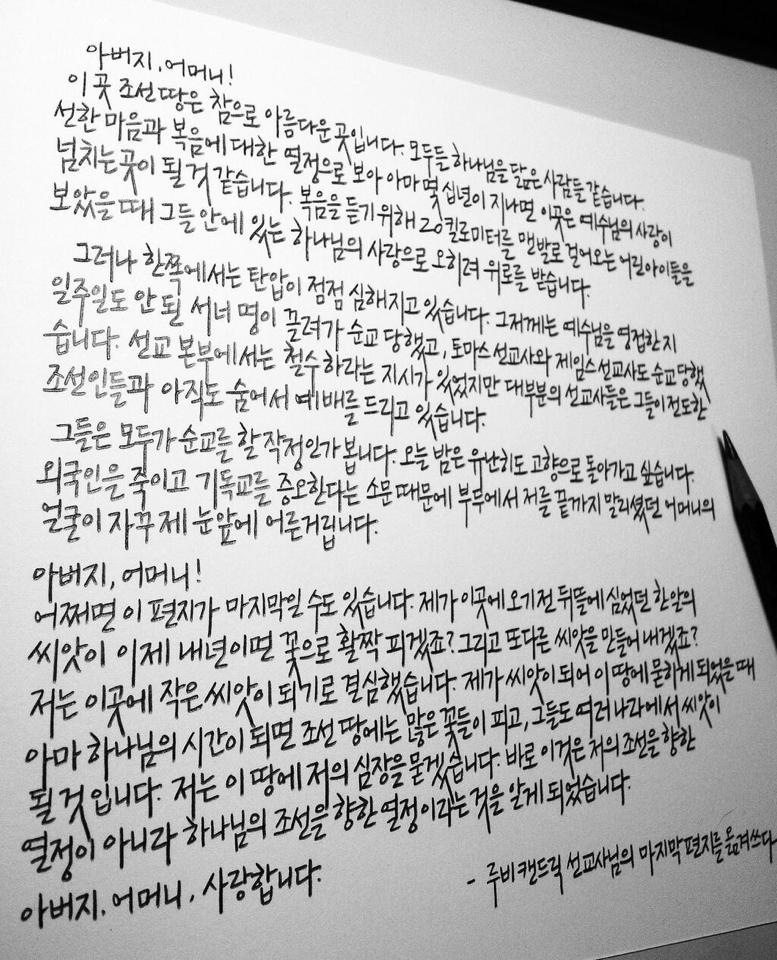 아버지, 어머니!
이 곳 조선 땅은 참으로 아름다운 곳입니다. 모두들 하나님을 닮은 사람들 같습니다.
선한 마음과 복음에 대한 열정으로 보아 아마 몇 십년이 지나면 이곳은 예수님의 사랑이
넘치는 곳이 될 것 같습니다. 복음을 듣기 위해 20킬로미터를 맨발로 걸어오는 어린아이들을
보았을 때 그들 안에 있는 하나님의 사랑으로 오히려 위로를 받습니다.
그러나 한쪽에서는 탄압이 점점 심해지고 있습니다. 그저께는 예수님을 영접한 지
일주일도 안 된 서너 명이 끌려가 순교 당했고, 토마스 선교사와 제임스 선교사도 순교 당했
습니다. 선교 본부에서는 철수하라는 지시가 있었지만 대부분의 선교사들은 그들이 전도한
조선인들과 아직도 숨어서 예배를 드리고 있습니다.
그들은 모두가 순교를 할 작정인가 봅니다. 오늘 밤은 유난히도 고향으로 돌아가고 싶습니다.
외국인을 죽이고 기독교를 증오한다는 소문 때문에 부두에서 저를 끝까지 말리셨던 어머니의
얼굴이 자꾸 제 눈앞에 어른거립니다.
아버지, 어머니!
어쩌면 이 편지가 마지막일 수도 있습니다. 제가 이곳에 오기 전 뒤뜰에 심었던 한 알의
씨앗이 이제 내년이면 꽃으로 활짝 피겠죠? 그리고 또 다른 씨앗을 만들어 내겠죠?
저는 이곳에 작은 씨앗이 되기로 결심했습니다. 제가 씨앗이 되어 이 땅에 묻히게 되었을 때
아마 하나님의 시간이 되면 조선 땅에는 많은 꽃들이 피고, 그들도 여러 나라에서 씨앗이
될 것입니다. 저는 이 땅에 저의 심장을 묻겠습니다. 바로 이것은 저의 조선을 향한
열정이 아니라 하나님의 조선을 향한 열정이라는 것을 알게 되었습니다.
아버지, 어머니, 사랑합니다.
- 루비 캔드릭 선교사님의 마지막 편지를 옮겨쓰다